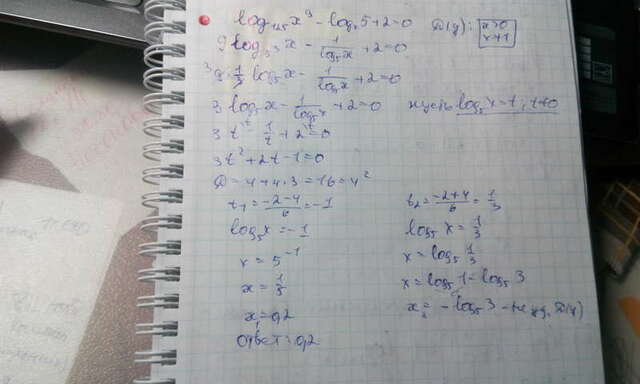 log₁₂₅x⁹ - logₓ5+2=0 D(y): x>0 x≠1
9log₅³x - 1/log₅x +2=0
9·1/3 log₅x - 1/log₅x +2=0
3 log₅x - 1/log₅x +2=0 пусть log₅x=t, t≠0
3t - 1/t + 2 = 0
3t²+2t-1=0
D=4+4·3=16=4²
t₁= (-2-4)/6 = -1 t₂= (-2+4)/6 = 1/3
log₅x=-1 log₅x = 1/3
x=5⁻¹ x=log₅ 1/3
x= 1/5 x=log₅1-log₅3
x₁=0,2 x₂= -log₅3 - не уд. D(y)
ответ: 0,2